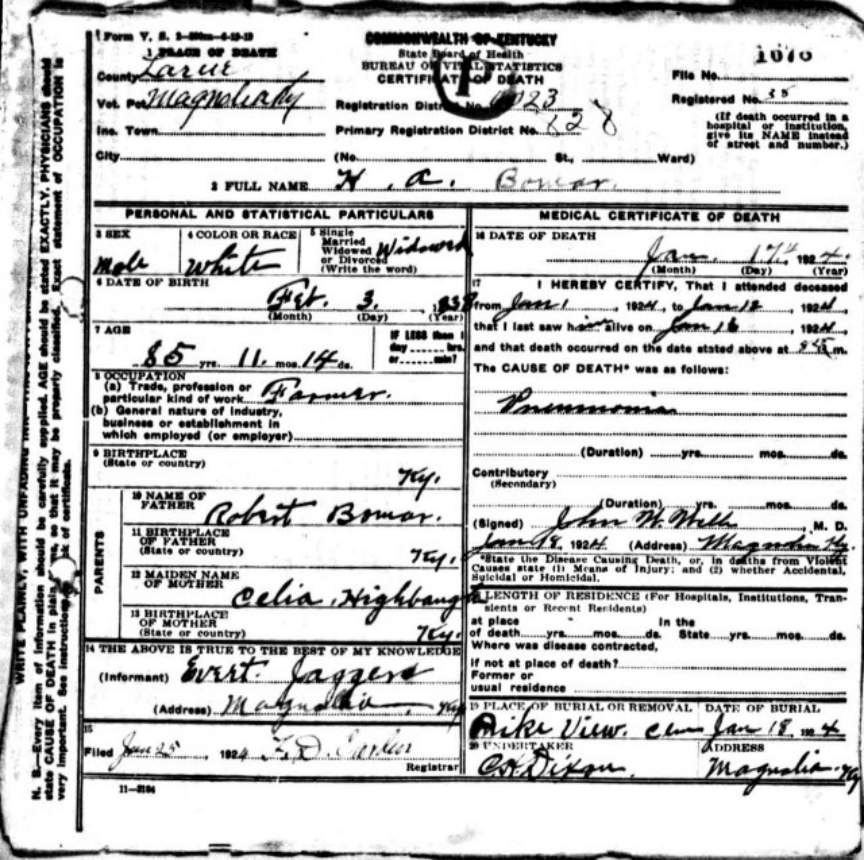 Form V. S.
COMMONWEALTH OF KENTUCKY
State Board of Health
BUREAU OF VITAL STATISTICS
CERTIFICATE OF DEATH
1 PLACE OF DEATH
County Larue
Vot. Pct. Magnolia Ky
Inc. Town
City
Registration District No. 6023
Primary Registration District No.
(No. St., Ward)
File No.
Registered No. 35
(If death occurred in a
hospital or institution,
give its NAME instead
of street and number.)
2 FULL NAME H. A. Bomar.
PERSONAL AND STATISTICAL PARTICULARS
3 SEX
Male
4 COLOR OR RACE
White
5 Single
Married
Widowed
or Divorced
(Write the word)
Widowed
6 DATE OF BIRTH
Feb. 3, 1838
(Month) (Day) (Year)
7 AGE
85 yrs. 11 mos. 14 ds.
IF LESS than 1
day hrs.
or min?
8 OCCUPATION
(a) Trade, profession or
particular kind of work Farmer.
(b) General nature of industry,
business or establishment in
which employed (or employer)
9 BIRTHPLACE
(State or country)
Ky.
PARENTS
10 NAME OF
FATHER
Robert Bomar.
11 BIRTHPLACE
OF FATHER
(State or country)
Ky.
12 MAIDEN NAME
OF MOTHER
Celia Highbaugh
13 BIRTHPLACE
OF MOTHER
(State or country)
Ky.
14 THE ABOVE IS TRUE TO THE BEST OF MY KNOWLEDGE
(Informant) Evert Jaggers
(Address) Magnolia, Ky
15
Filed Jan 25, 1924
Registrar
11-3184
MEDICAL CERTIFICATE OF DEATH
16 DATE OF DEATH
Jan. 17, 1924
(Month) (Day) (Year)
17
I HEREBY CERTIFY, That I attended deceased
from Jan 1, 1924, to Jan 18, 1924,
that I last saw him alive on Jan 16, 1924,
and that death occurred on the date stated above at m.
The CAUSE OF DEATH* was as follows:
Pneumonia
(Duration) yrs. mos. ds.
Contributory
(Secondary)
(Duration) yrs. mos. ds.
(Signed) John W. Wills, M. D.
Jan 18, 1924 (Address) Magnolia Ky.
*State the Disease Causing Death, or, in deaths from Violent
Causes state (1) Means of Injury; and (2) whether Accidental,
Suicidal or Homicidal.
LENGTH OF RESIDENCE (For Hospitals, Institutions, Tran-
sients or Recent Residents)
at place In the
of death yrs. mos. ds. State yrs. mos. ds.
Where was disease contracted,
if not at place of death?
Former or
usual residence
19 PLACE OF BURIAL OR REMOVAL
Pike View. Cem
DATE OF BURIAL
Jan 18, 1924
20 UNDERTAKER
Dixon
ADDRESS
Magnolia Ky
WRITE PLAINLY, WITH UNFADING
N. B.—Every item of information should be carefully supplied. AGE should be stated EXACTLY. PHYSICIANS should
state CAUSE OF DEATH in plain terms, so that it may be properly classified. Exact statement of OCCUPATION is
very important. See instructions on back of certificate.